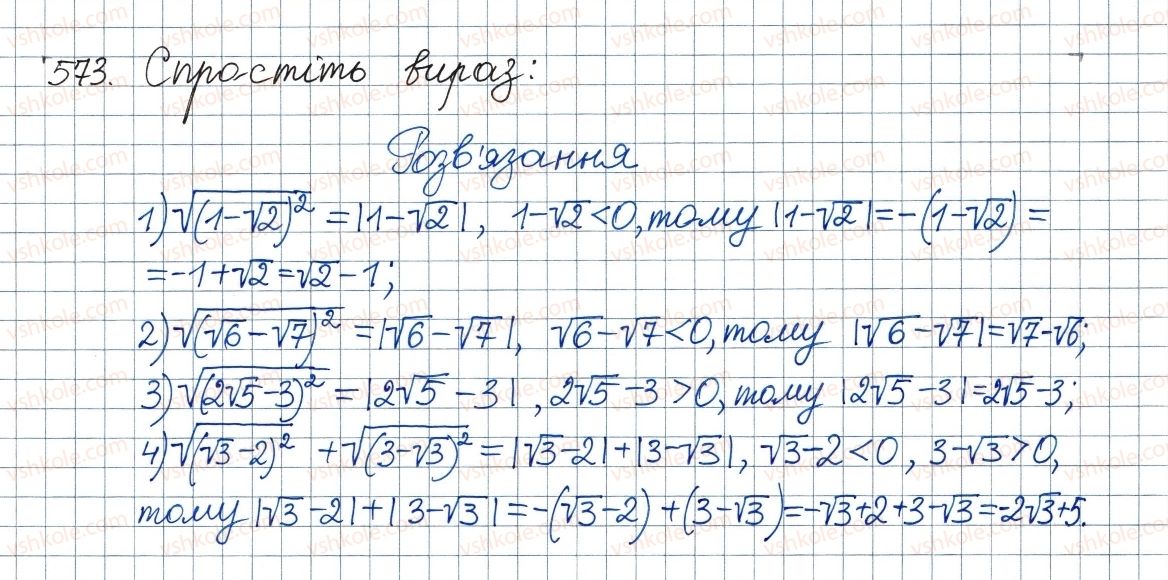 573. Спростіть вираз:
Розв'язання
1) √(1-√2)² = |1-√2|, 1-√2<0, тому |1-√2|=-(1-√2) =
=-1+√2=√2-1;
2) √(√6-√7)² =|√6-√7|, √6-√7<0, тому |√6-√7|=√7-√6;
3) √(2√5-3)² = |2√5-3|, 2√5-3>0, тому |2√5-3|=2√5-3;
4) √(√3-2)² +√(3-√3)² = |√3-2|+|3-√3|, √3-2<0, 3-√3>0,
тому |√3-2|+|3-√3|=-(√3-2)+(3-√3)=-√3+2+3-√3=-2√3+5.
vshkole.com